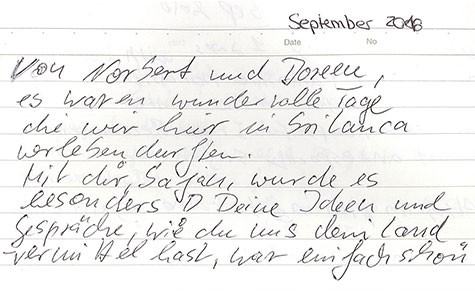 September 2016
Date No
Von Norbert und Doreen,
es waren wundervolle Tage
die wir hier in Srilanca
verleben durften.
Mit dir, Sajan, wurde es
besonders :D Deine Ideen und
Gespräche, wie du uns dein Land
vermittel hast, war einfach schön